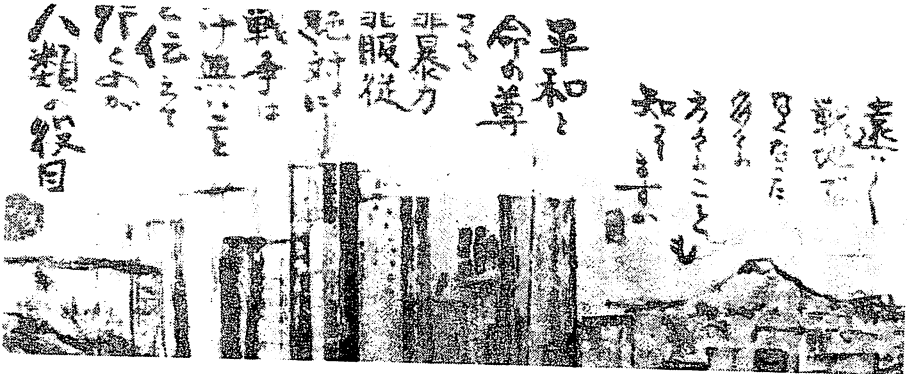 遠い
戦地で
亡くなった
多くの
方々のことも
知り
平和と
命の尊
さを
非暴力
非服従
絶対に
戦争は
無いこと
と伝えて
行くのが
人類の役目